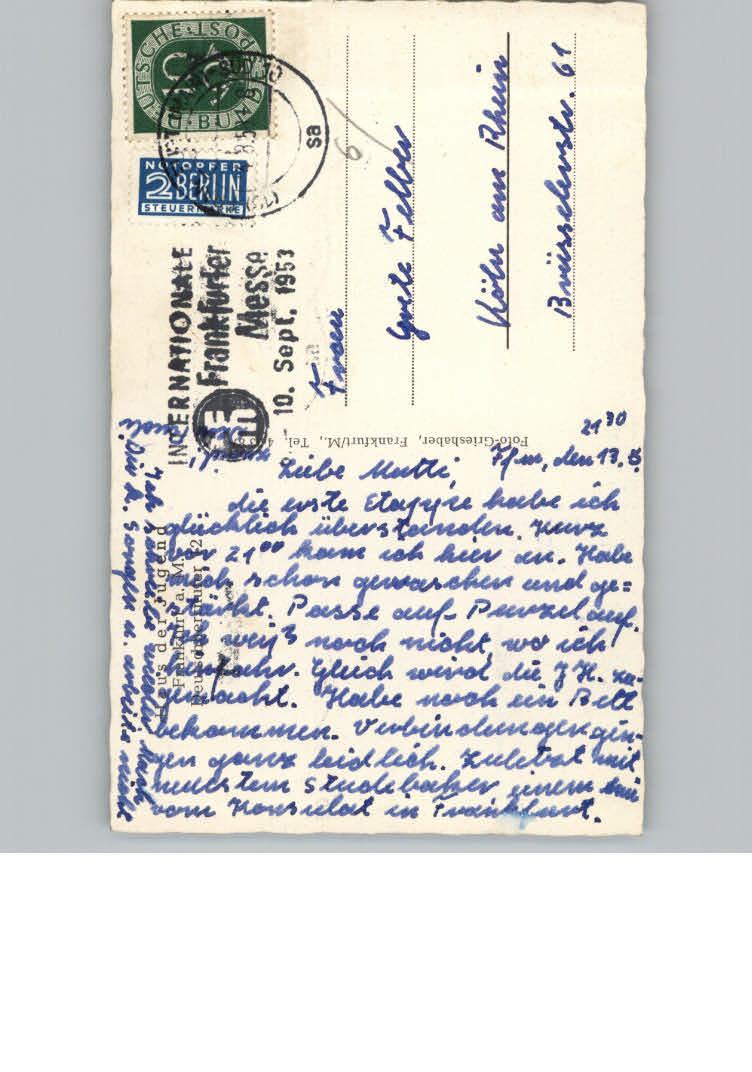 DEUTSCHE BUNDESPOST
10
NOTOPFER
2 BERLIN
STEUERMARKE
sa
INTERNATIONALE
Frankfurter
Messe
10. Sept. 1953
Frau
Grete Felber
Köln am Rhein
Brüsselerstr. 61
Foto-Grieshaber, Frankfurt/M., Tel.
Haus der Jugend
Frankfurt a. M.
Deutschherrnufer 12
21 30
Liebe Mutti, Ffm, den 13. 8.
die erste Etappe habe ich
glücklich überstanden. Kurz
vor 21 00 kam ich hier an. Habe
mich schon gewaschen und ge=
stärkt. Passe auf Purzel auf.
Ich weiß noch nicht, wo ich
hinfahr. Gleich wird die J.H. zu=
gemacht. Habe noch ein Bett
bekommen. Verbindungen gin=
gen ganz leidlich. Zuletzt mit
neustem Studebaker einem
vom Konsulat in Frankfurt.
Ich schreibe wieder. Mach
Dir k. Sorgen u. arbeite nicht